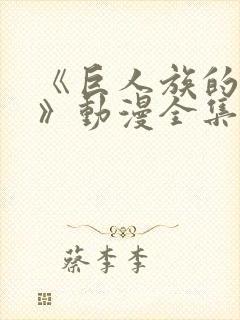 《巨人族的
》動漫全集
蔡李李